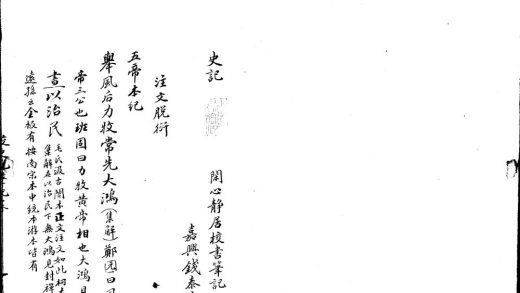 史記 閑心靜居校書筆記
嘉興錢泰
注文脫衍
五帝本紀
舉風后力牧常先大鴻(集解)鄭玄曰風
帝三公也班固曰力牧黃帝相也大鴻見
書以治民 毛氏汲古閣本正文注文如此柯本
集解在以治民下無大鴻見封禪
遠孫云金板有按南宗本中統本游本皆有